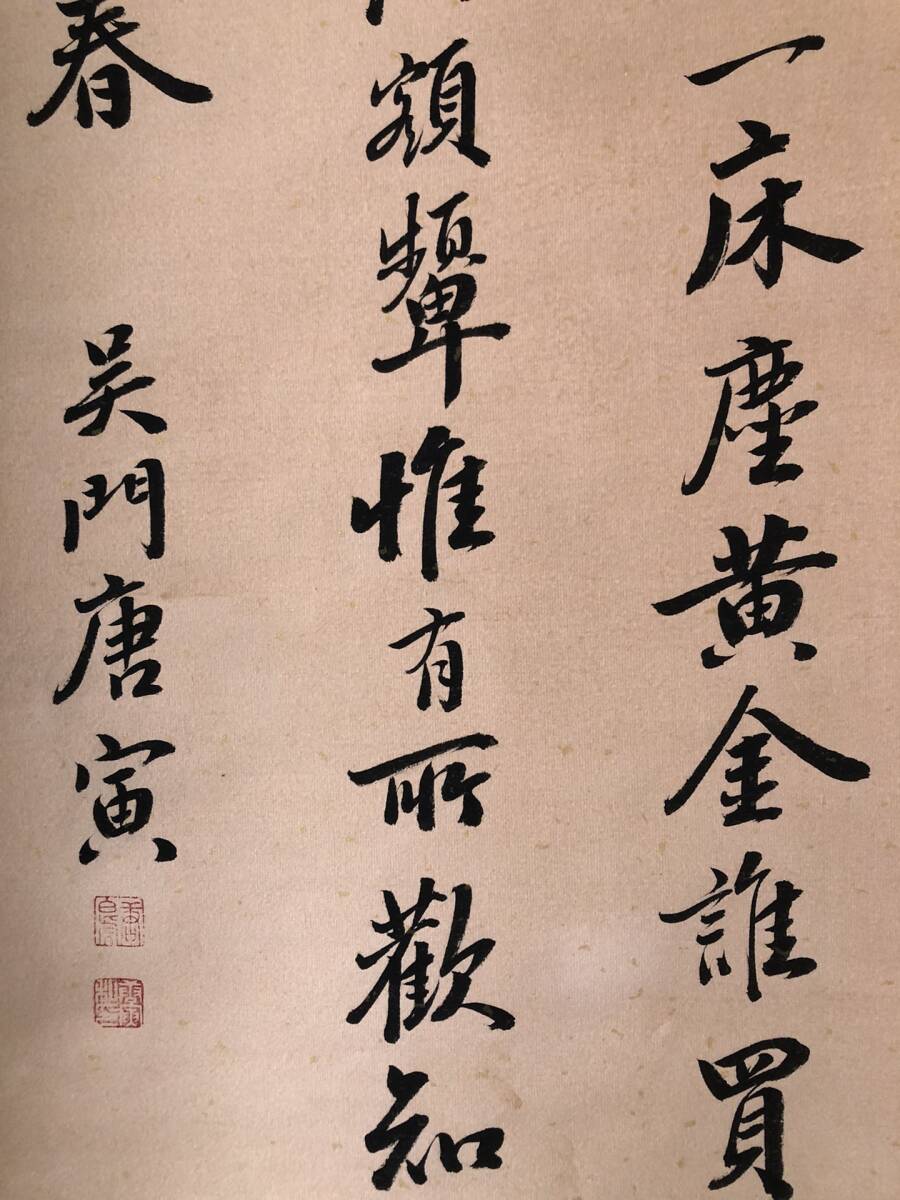 一床塵黃金誰買
額顰惟有所歡知
春
吳門唐寅